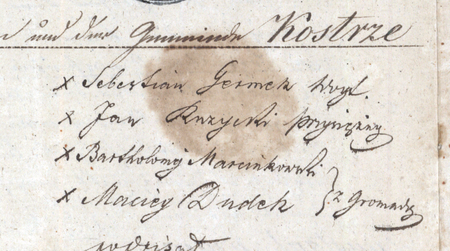 und der Gemeinde Kostrze
x Sebestian Germek Woyt.
x Jan Knzycki przysiężny
x Bartholomij Marcinkowski
x Maciey Dudek } z Gromady
podpisał